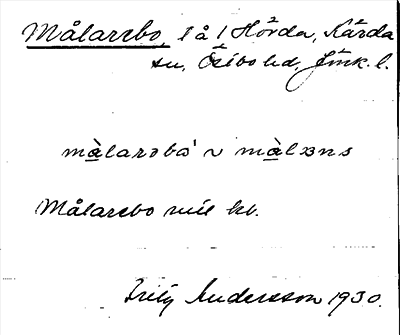 Målarebo, 1 å 1 Hörda, Kärda
sn, Östbo hd, Jönk. l.
màlarəbo' ~ màlɜns
Målarebo mil kb.
Fritz Andersson 1930.